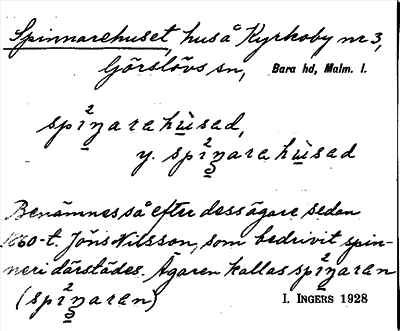 Spinnarehuset, hus å Kyrkoby nr 3,
Görslövs sn, Bara hd, Malm. l.
spi̱²ŋarehù̱sad,
y. spi̱²ŋarahù̱sad
Benämnes så efter dess ägare sedan
1860-t. Jöns Nilsson, som bedrivit spin-
neri därstädes. Ägaren kallas spi̱²ŋaran
(spi̱²ŋaran)
I. INGERS 1928